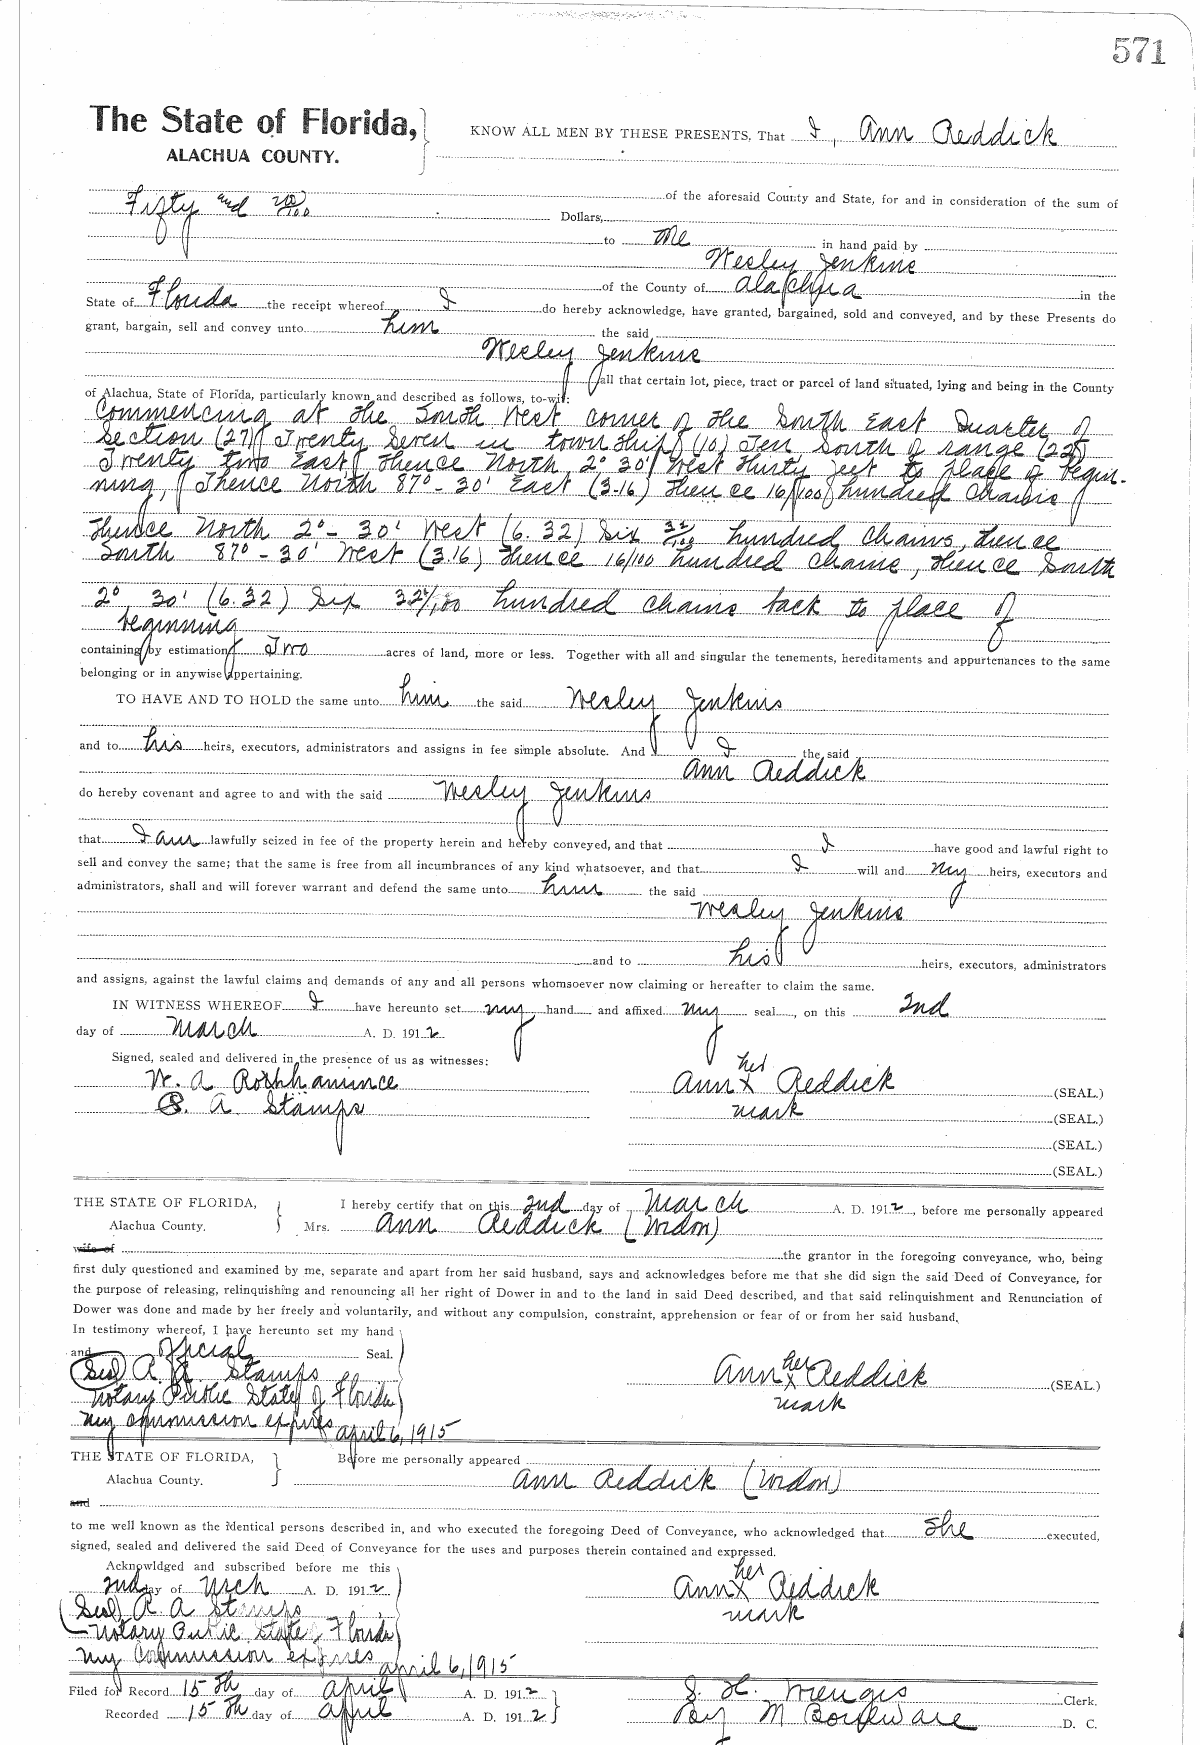 571
The State of Florida,
ALACHUA COUNTY.
KNOW ALL MEN BY THESE PRESENTS, That I, Ann Reddick
of the aforesaid County and State, for and in consideration of the sum of
Fifty and Dollars,
to me in hand paid by
Wesley Jenkins
of the County of Alachua in the
State of Florida the receipt whereof I do hereby acknowledge, have granted, bargained, sold and conveyed, and by these Presents do
grant, bargain, sell and convey unto him the said
Wesley Jenkins
all that certain lot, piece, tract or parcel of land situated, lying and being in the County
of Alachua, State of Florida, particularly known and described as follows, to-wit:
Commencing at the South West corner of the South East Quarter of
Section (27) Twenty Seven in township (10) Ten South of range (22)
Twenty two East, Thence North 2° 30' West thirty feet to place of begin-
ning, Thence North 87°-30' East (3.16) thence 16/100 hundred chains
thence North 2°-30' West (6.32) Six 32/100 hundred chains, thence
South 87°-30' West (3.16) thence 16/100 hundred chains, thence South
2° 30' (6.32) Six 32/100 hundred chains back to place of
beginning
containing by estimation Two acres of land, more or less. Together with all and singular the tenements, hereditaments and appurtenances to the same
belonging or in anywise appertaining.
TO HAVE AND TO HOLD the same unto him the said Wesley Jenkins
and to his heirs, executors, administrators and assigns in fee simple absolute. And I the said
Ann Reddick
do hereby covenant and agree to and with the said Wesley Jenkins
that I am lawfully seized in fee of the property herein and hereby conveyed, and that I have good and lawful right to
sell and convey the same; that the same is free from all incumbrances of any kind whatsoever, and that I will and my heirs, executors and
administrators, shall and will forever warrant and defend the same unto him the said
Wesley Jenkins
and to his heirs, executors, administrators
and assigns, against the lawful claims and demands of any and all persons whomsoever now claiming or hereafter to claim the same.
IN WITNESS WHEREOF I have hereunto set my hand and affixed my seal, on this 2nd
day of March A. D. 1912
Signed, sealed and delivered in the presence of us as witnesses:
her
W. A. Ann x Reddick (SEAL.)
A Stamps mark (SEAL.)
(SEAL.)
(SEAL.)
THE STATE OF FLORIDA, I hereby certify that on this 2nd day of March A. D. 1912, before me personally appeared
Alachua County. Mrs. Ann Reddick (Widow)
wife of the grantor in the foregoing conveyance, who, being
first duly questioned and examined by me, separate and apart from her said husband, says and acknowledges before me that she did sign the said Deed of Conveyance, for
the purpose of releasing, relinquishing and renouncing all her right of Dower in and to the land in said Deed described, and that said relinquishment and Renunciation of
Dower was done and made by her freely and voluntarily, and without any compulsion, constraint, apprehension or fear of or from her said husband.
In testimony whereof, I have hereunto set my hand
and official Seal.
(Seal) R. A. Stamps Ann her x Reddick (SEAL.)
Notary Public State of Florida mark
My commission expires April 6, 1915
THE STATE OF FLORIDA, Before me personally appeared
Alachua County. Ann Reddick (Widow)
and
to me well known as the identical persons described in, and who executed the foregoing Deed of Conveyance, who acknowledged that She executed,
signed, sealed and delivered the said Deed of Conveyance for the uses and purposes therein contained and expressed.
Acknowldged and subscribed before me this her
2nd day of Mrch A. D. 1912 Ann x Reddick
(Seal) R A Stamps mark
Notary Public State Florida
My Commission expires April 6, 1915
Filed for Record 15th day of April A. D. 1912 S. H. Wienges Clerk.
Recorded 15th day of April A. D. 1912 By M D. C.